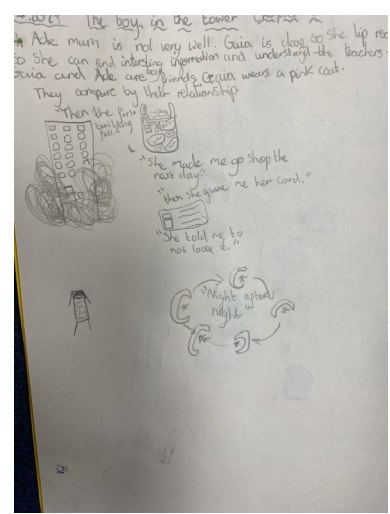 The boy in the tower
Ade mum is not very well. Gaia is deaf so She lip
so She can find intersting information and understand the teachers.
Gaia and Ade are best friends Gaia wears a pink coat.
They compare by their relationship
"Then the first
building
fell."
"She made me go shop the
next day."
"then she gave me her card."
"She told me to
not loose it."
"Night after
night."